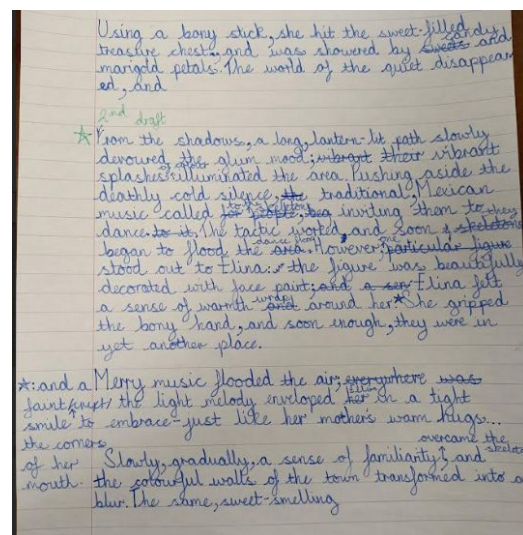 Using a bony stick, she hit the sweet-filled
treasure chest, and was showered by sweets candy and
marigold petals. The world of the quiet disappear
ed, and
2nd draft
From the shadows, a long, lantern-lit path slowly
devoured the glum mood; vibrant their vibrant
splashes illuminated the area. Pushing aside the
deathly cold silence, the traditional, Mexican
music called inviting them to
dance to it. The tactic worked, and soon they skeletons
began to flood the area dance floor. However, one particular figure
stood out to Elina: the figure was beautifully
decorated with face paint; and a sen Elina felt
a sense of warmth and wrap around her* She gripped
the bony hand, and soon enough, they were in
yet another place.
Merry music flooded the air; everywhere was
the light melody enveloped her Elina in a tight
embrace - just like her mother's warm hugs...
*: and a
faint
smile to
the corners
of her
mouth.
Slowly, gradually, a sense of familiarity overcame the skeleton, and
the colourful walls of the town transformed into a
blur. The same, sweet-smelling